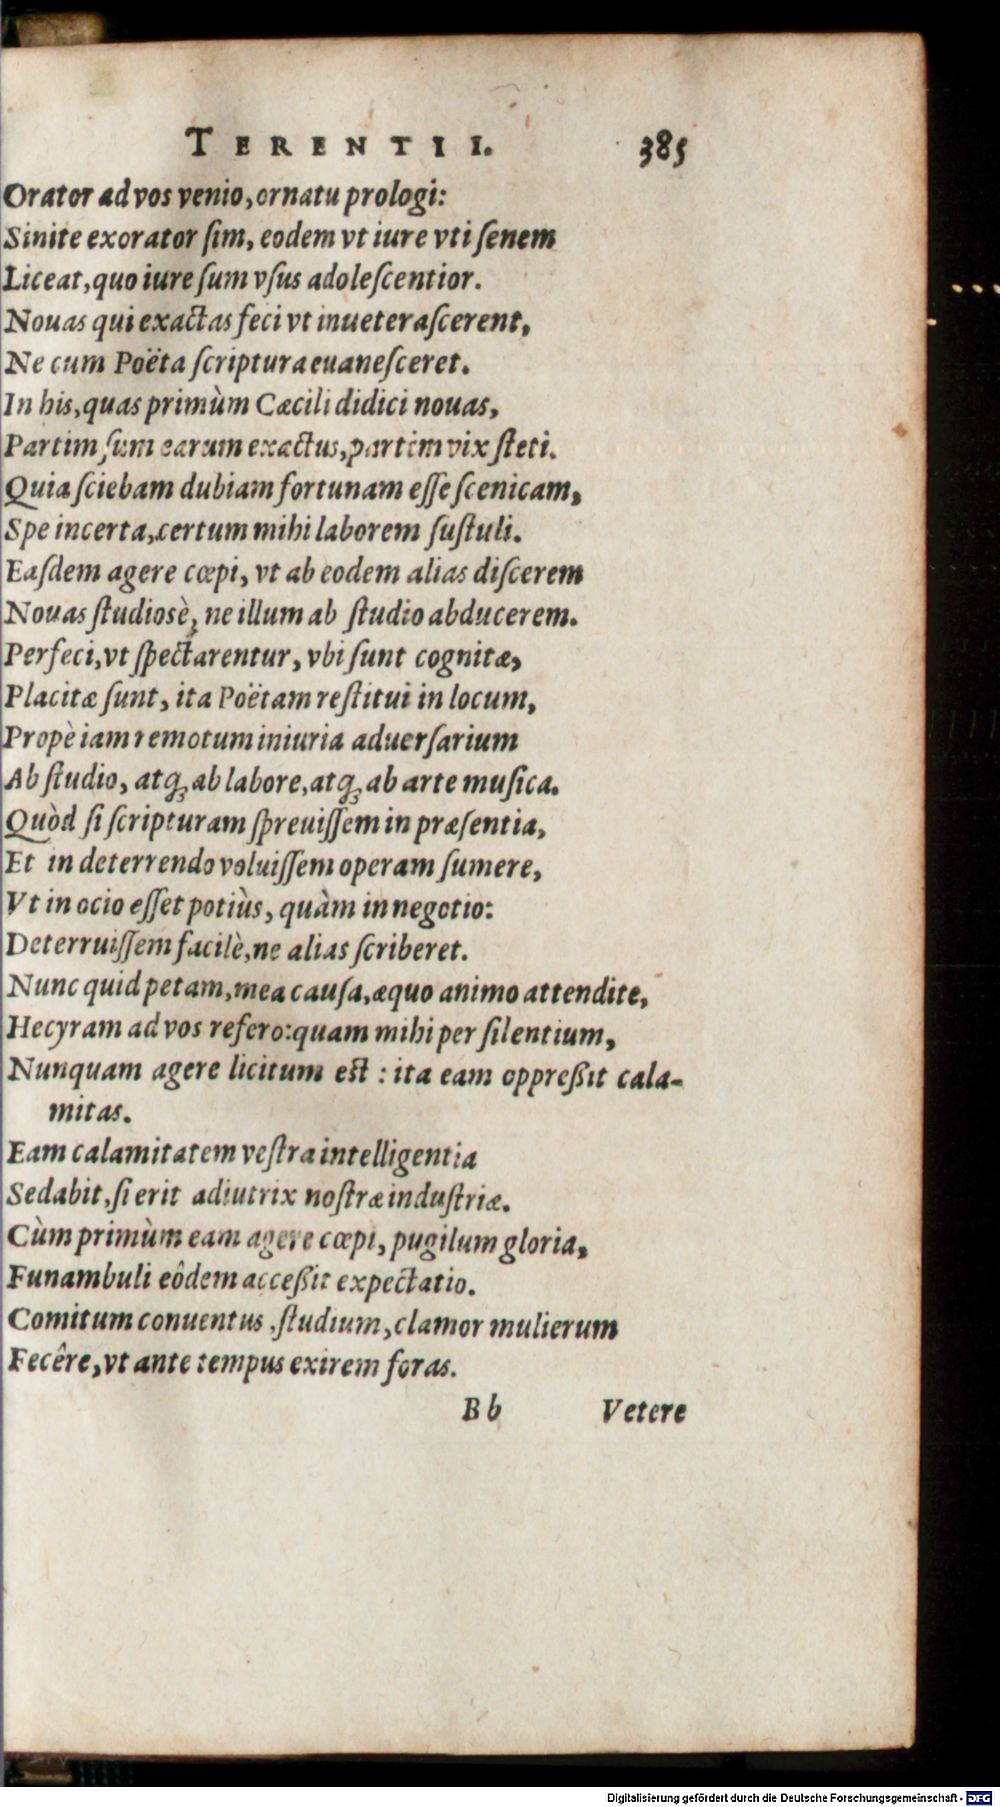 TERENTII. 385
Orator ad vos venio, ornatu prologi:
Sinite exorator ſim, eodem vt iure vti ſenem
Liceat, quo iure ſum vſus adoleſcentior.
Nouas qui exactas feci vt inueteraſcerent,
Ne cum Poëta ſcriptura euaneſceret.
In his, quas primùm Cæcili didici nouas,
Partim ſum earum exactus, partim vix ſteti.
Quia ſciebam dubiam fortunam eſſe ſcenicam,
Spe incerta, certum mihi laborem ſuſtuli.
Eaſdem agere cœpi, vt ab eodem alias diſcerem
Nouas ſtudiosè, ne illum ab ſtudio abducerem.
Perfeci, vt ſpectarentur, vbi ſunt cognitæ,
Placitæ ſunt, ita Poëtam reſtitui in locum,
Propè iam remotum iniuria aduerſarium
Ab ſtudio, atq; ab labore, atq; ab arte muſica.
Quòd ſi ſcripturam ſpreuiſſem in præſentia,
Et in deterrendo voluiſſem operam ſumere,
Vt in ocio eſſet potiùs, quàm in negotio:
Deterruiſſem facilè, ne alias ſcriberet.
Nunc quid petam, mea cauſa, æquo animo attendite,
Hecyram ad vos refero: quam mihi per ſilentium,
Nunquam agere licitum eſt : ita eam oppreßit cala-
mitas.
Eam calamitatem veſtra intelligentia
Sedabit, ſi erit adiutrix noſtræ induſtriæ.
Cùm primùm eam agere cœpi, pugilum gloria,
Funambuli eôdem acceßit expectatio.
Comitum conuentus, ſtudium, clamor mulierum
Fecêre, vt ante tempus exirem foras.
Bb Vetere
Digitalisierung gefördert durch die Deutsche Forschungsgemeinschaft - DFG